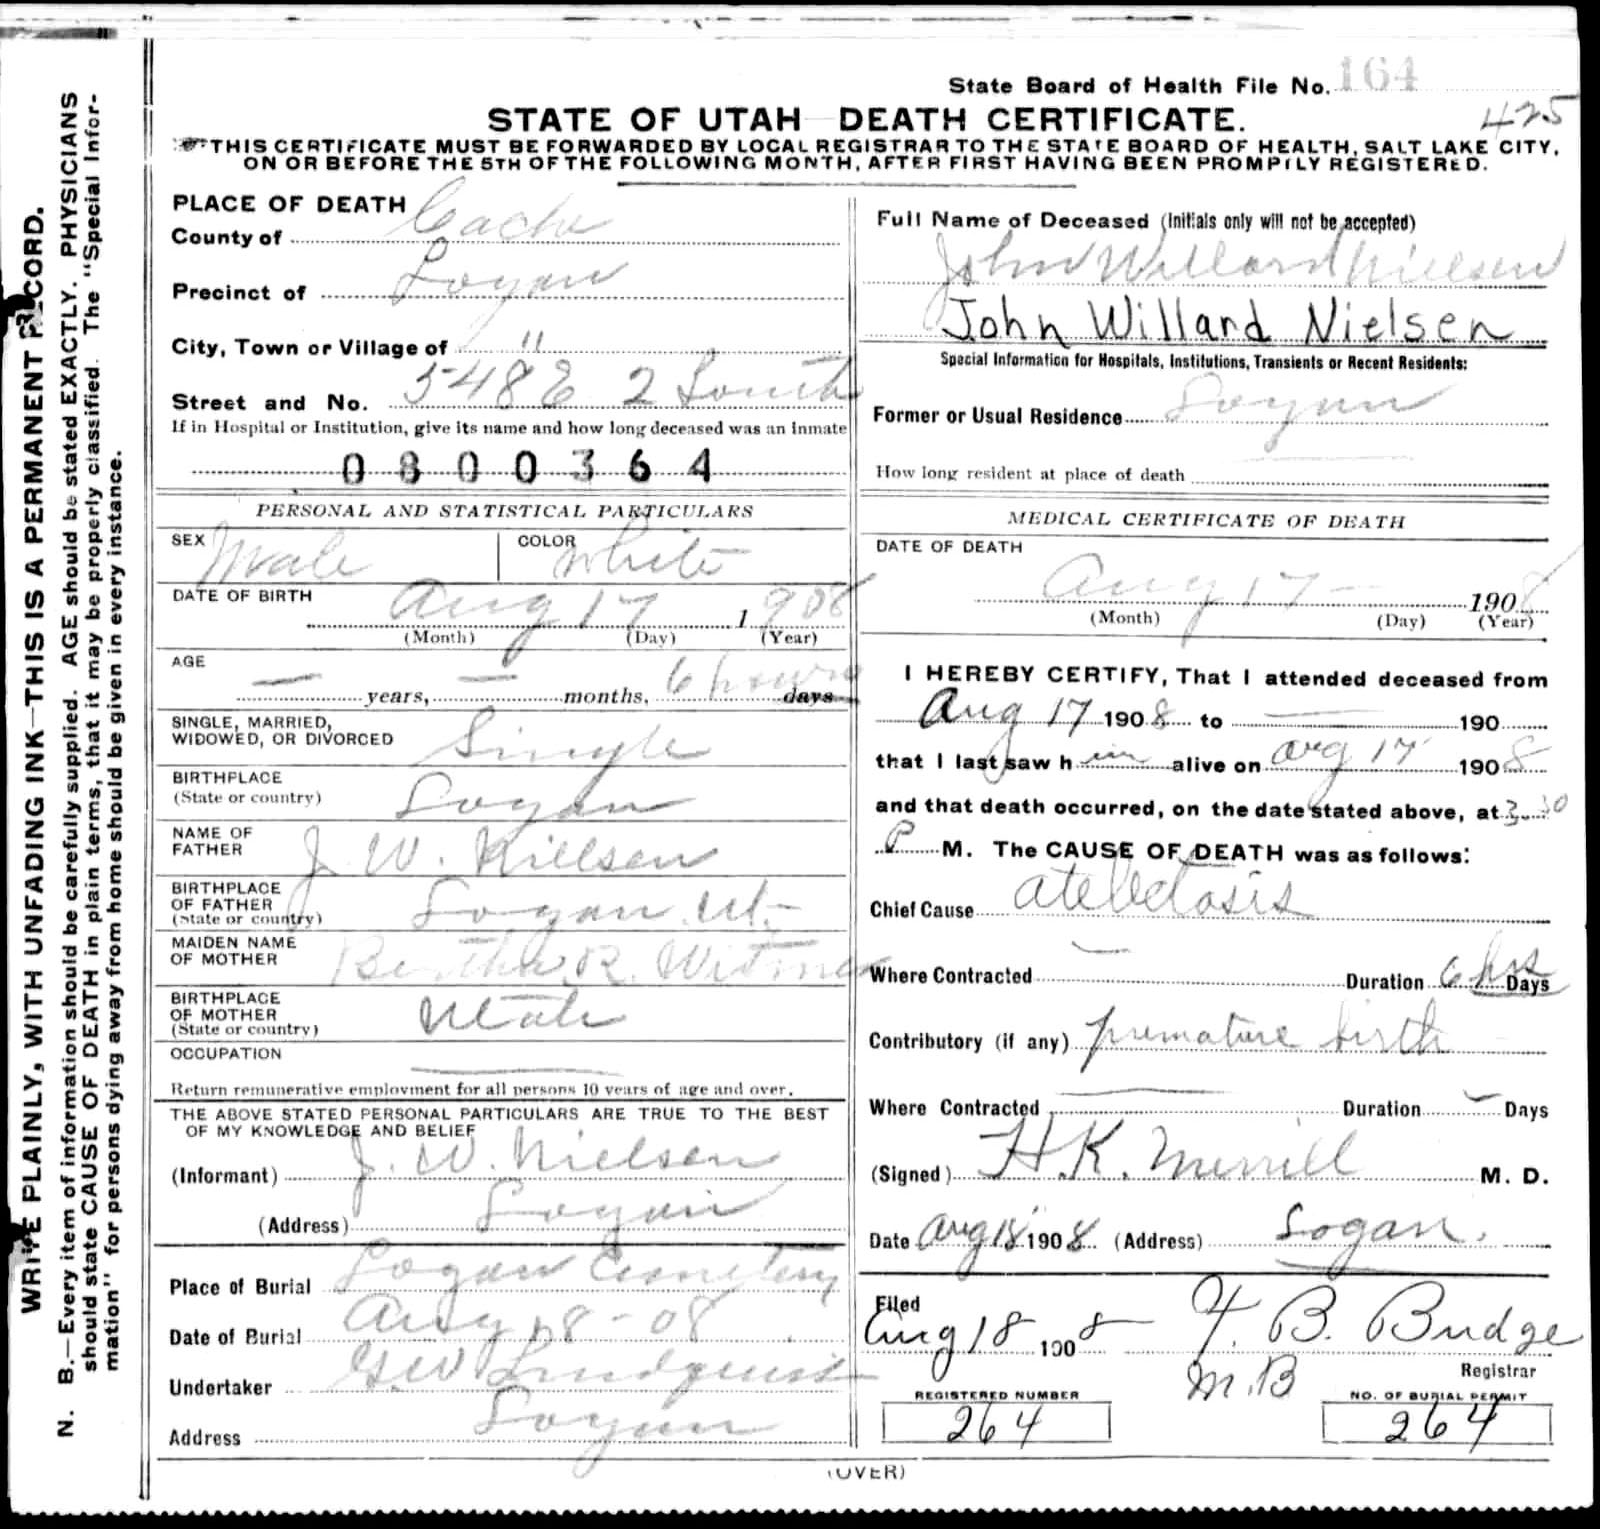 State Board of Health File No. 164
425
STATE OF UTAH DEATH CERTIFICATE.
THIS CERTIFICATE MUST BE FORWARDED BY LOCAL REGISTRAR TO THE STATE BOARD OF HEALTH, SALT LAKE CITY,
ON OR BEFORE THE 5TH OF THE FOLLOWING MONTH, AFTER FIRST HAVING BEEN PROMPTLY REGISTERED.
WRITE PLAINLY, WITH UNFADING INK—THIS IS A PERMANENT RECORD.
N. B.—Every item of information should be carefully supplied. AGE should be stated EXACTLY. PHYSICIANS
should state CAUSE OF DEATH in plain terms, that it may be properly classified. The "Special Infor-
mation" for persons dying away from home should be given in every instance.
PLACE OF DEATH
County of Cache
Precinct of Logan
City, Town or Village of "
Street and No. 548 E 2 South
If in Hospital or Institution, give its name and how long deceased was an inmate
0800364
PERSONAL AND STATISTICAL PARTICULARS
SEX Male COLOR White
DATE OF BIRTH Aug 17 1908
(Month) (Day) (Year)
AGE — years, — months, 6 hours days
SINGLE, MARRIED,
WIDOWED, OR DIVORCED Single
BIRTHPLACE
(State or country) Logan
NAME OF
FATHER J. W. Nielsen
BIRTHPLACE
OF FATHER
(State or country) Logan Ut.
MAIDEN NAME
OF MOTHER Bertha R. Witmer
BIRTHPLACE
OF MOTHER
(State or country) Utah
OCCUPATION
Return remunerative employment for all persons 10 years of age and over.
THE ABOVE STATED PERSONAL PARTICULARS ARE TRUE TO THE BEST
OF MY KNOWLEDGE AND BELIEF
(Informant) J. W. Nielsen
(Address) Logan
Place of Burial Logan Cemetery
Date of Burial Aug 18-08
Undertaker G W Lindquist
Address Logan
Full Name of Deceased (Initials only will not be accepted)
John Willard Nielsen
John Willard Nielsen
Special Information for Hospitals, Institutions, Transients or Recent Residents:
Former or Usual Residence Logan
How long resident at place of death
MEDICAL CERTIFICATE OF DEATH
DATE OF DEATH
Aug 17 — 1908
(Month) (Day) (Year)
I HEREBY CERTIFY, That I attended deceased from
Aug 17 1908 to — 190
that I last saw him alive on Aug 17 1908
and that death occurred, on the date stated above, at 3.30
P M. The CAUSE OF DEATH was as follows:
Chief Cause atelectasis
Where Contracted — Duration 6 hrs Days
Contributory (if any) premature birth
Where Contracted — Duration — Days
(Signed) H. K. Merrill M. D.
Date Aug 18 1908 (Address) Logan.
Filed
Aug 18 1908 F. B. Budge
M.B Registrar
REGISTERED NUMBER
264
NO. OF BURIAL PERMIT
264
(OVER)